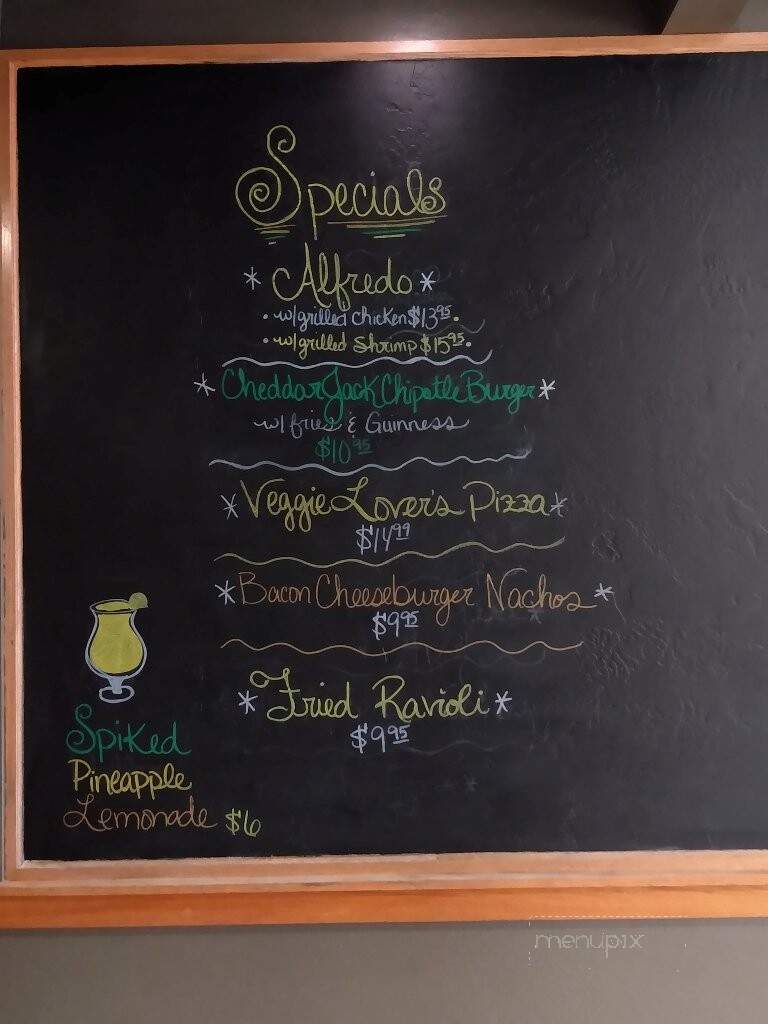 Specials
* Alfredo *
• w/grilled chicken $13.95 •
• w/grilled Shrimp $15.95 •
* Cheddar Jack Chipotle Burger *
w/ fries & Guinness
$10.95
* Veggie Lover's Pizza *
$14.99
* Bacon Cheeseburger Nachos *
$9.95
* Fried Ravioli *
$9.95
Spiked
Pineapple
Lemonade $6
menupix